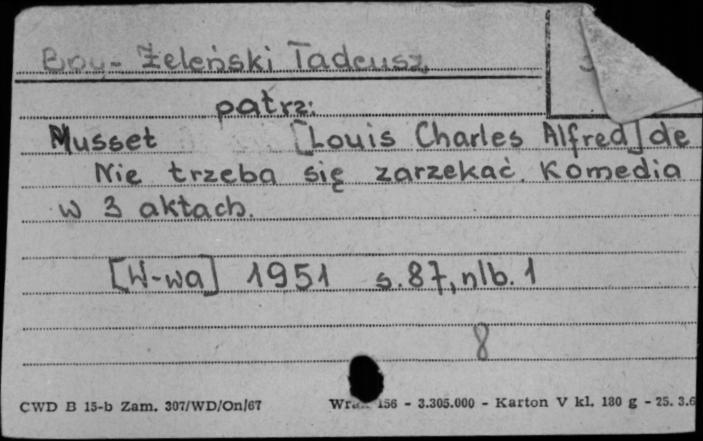 Boy-Żeleński Tadeusz
patrz:
Musset [Louis Charles Alfred] de
Nie trzeba się zarzekać. Komedia
w 3 aktach.
[W-wa] 1951 s. 87, nlb. 1
8
CWD B 15-b Zam. 307/WD/On/67 156 - 3.305.000 - Karton V kl. 180 g - 25. 3.6